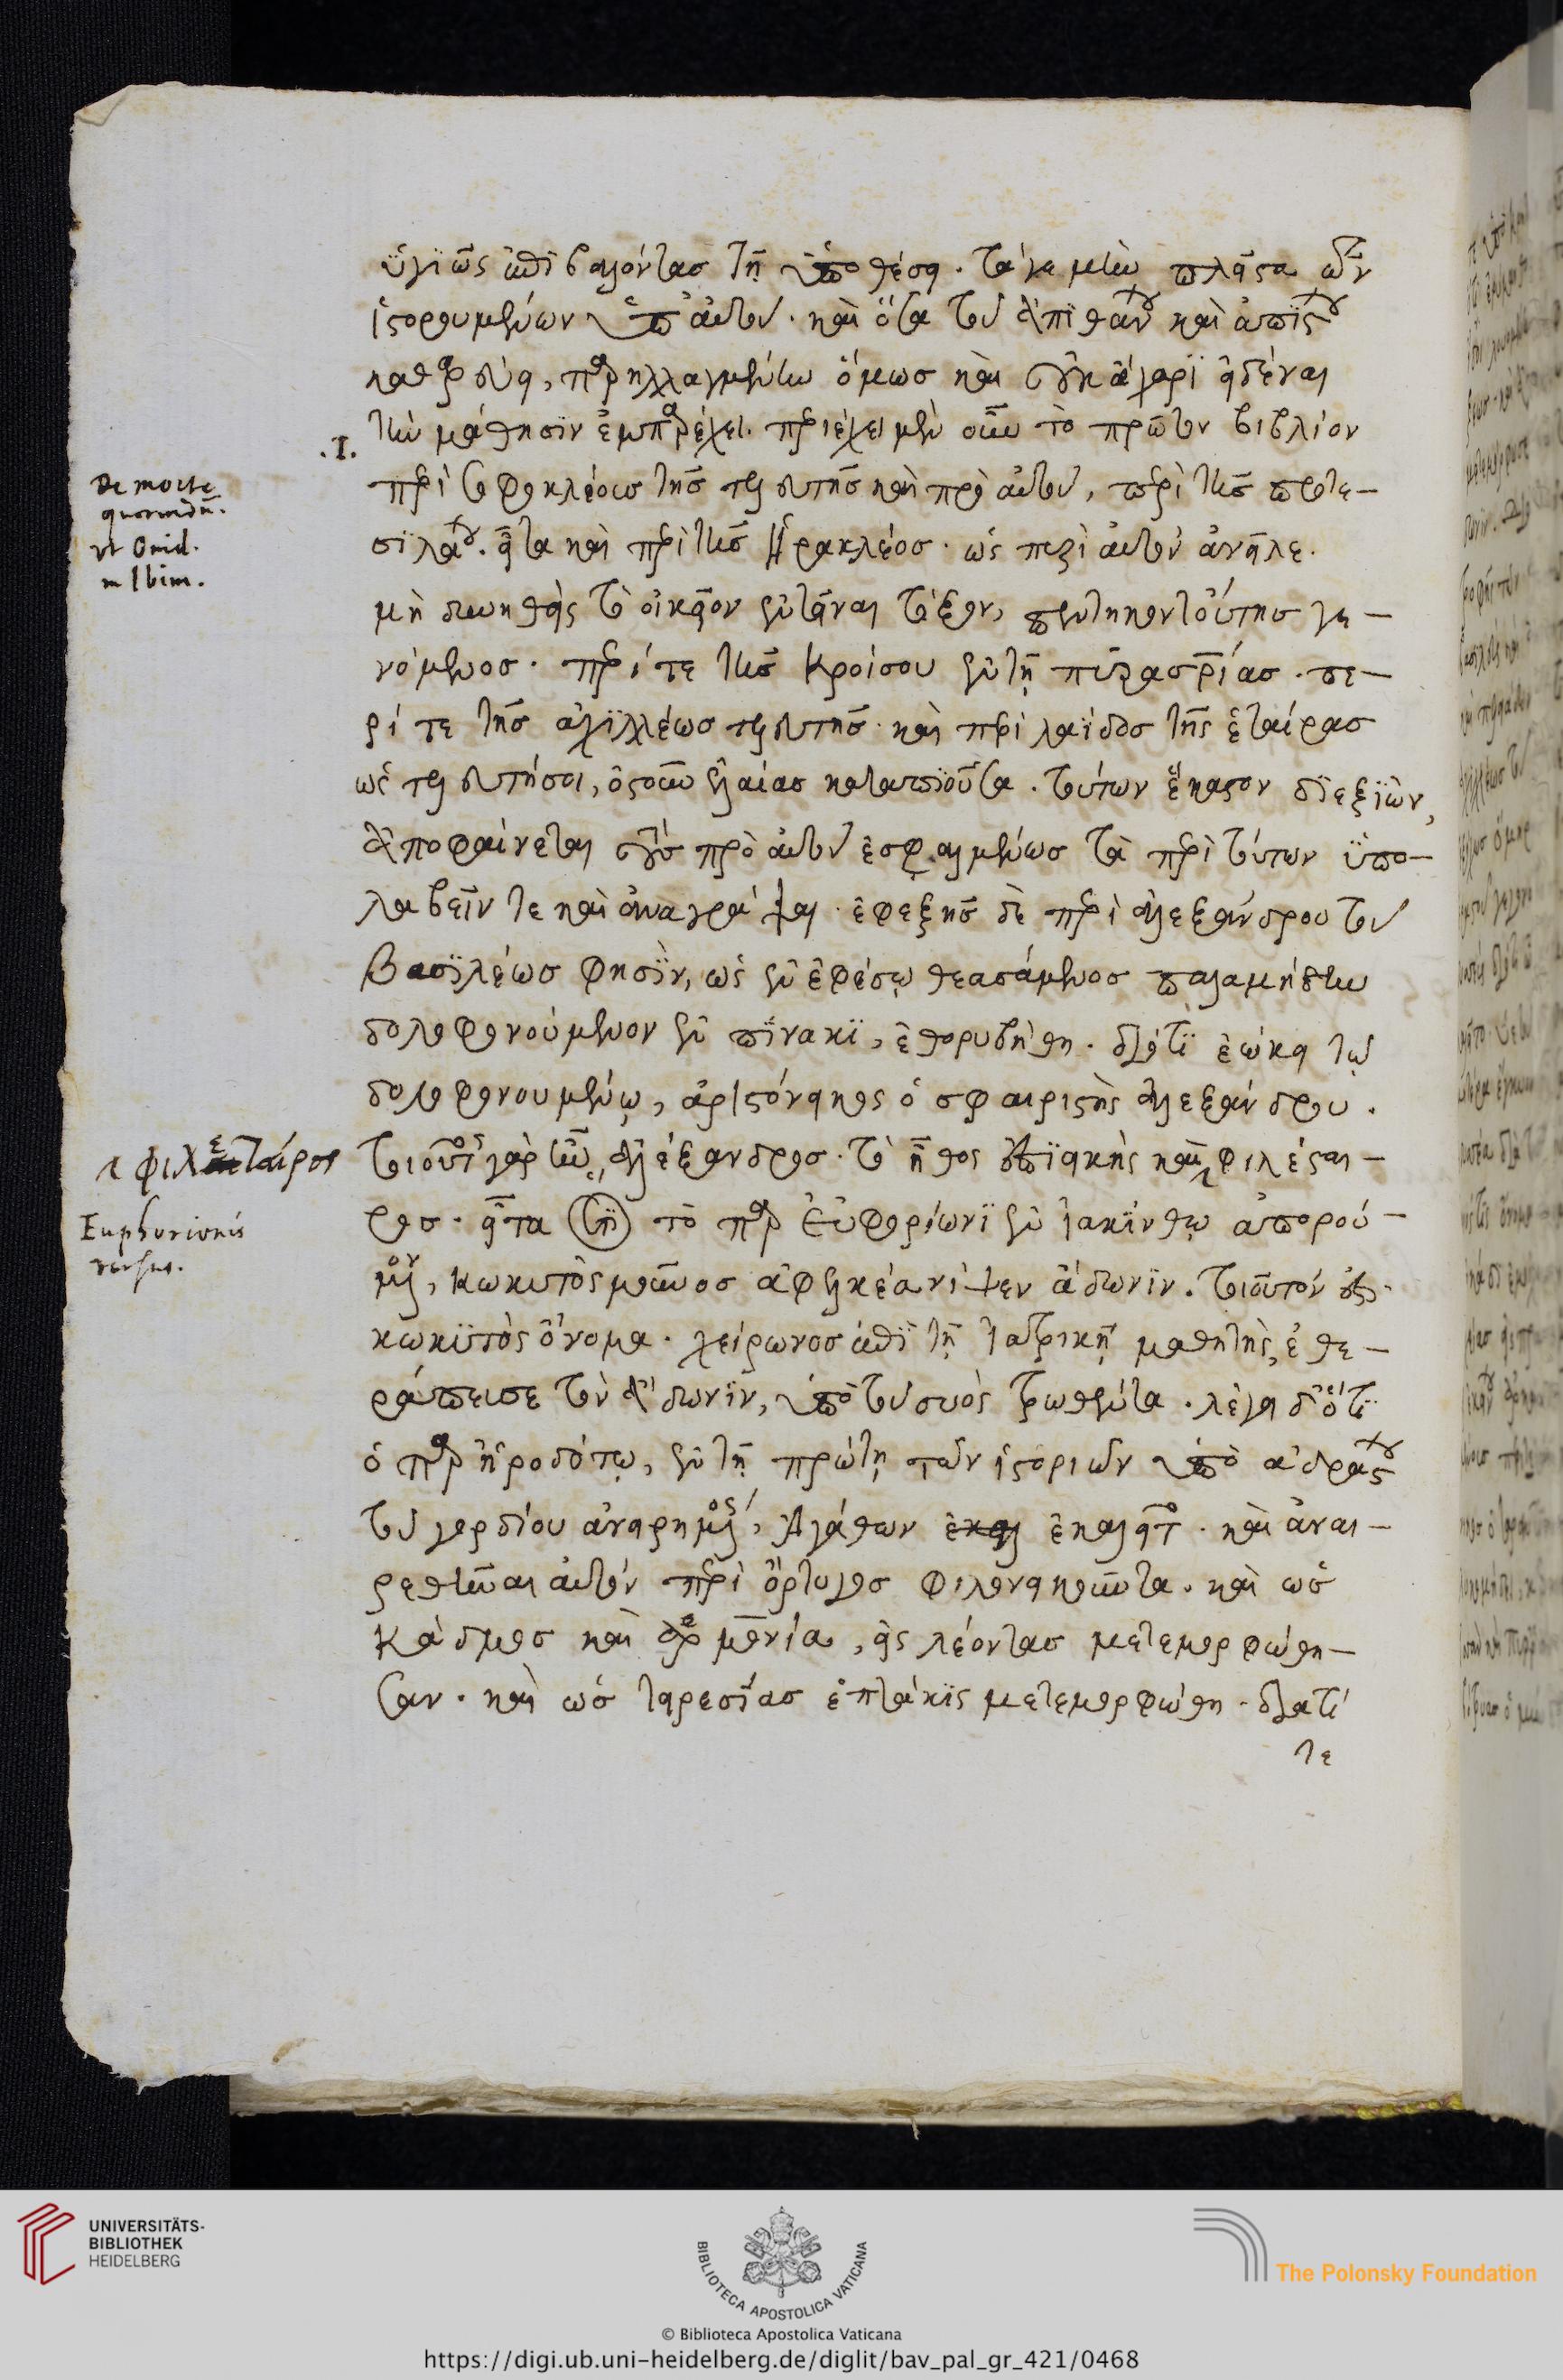 ὑγιῶς ἐπιβαλόντας τῇ ὑποθέσει. τά γε μὴν πλεῖστα τῶν
ἱστορουμένων ὑπ' αὐτοῦ. καὶ ὅσα τοῦ ἀπιθάνου καὶ ἀπίστου
καθαρεύει, παρηλλαγμένην ὅμως καὶ οὐκ ἄχαρι εἰδέναι
τὴν μάθησιν ἐμπαρέχει. περιέχει μὲν οὖν τὸ πρῶτον βιβλίον
περὶ σοφοκλέους τῆς τελευτῆς καὶ πρὸ αὐτοῦ, περὶ τῆς πρωτε-
σιλάου. εἶτα καὶ περὶ τῆς Ἡρακλέος. ὡς πυρὶ αὐτὸν ἀνεῖλε.
μὴ δυνηθεὶς τὸ οἰκεῖον ἐντεῖναι τόξον, πεντηκοντούτης γε-
νόμενος. περί τε τῆς Κροίσου ἐν τῇ πυρᾷ σρίας. πε-
ρί τε τῆς ἀχιλλέως τελευτῆς. καὶ περὶ λαΐδος τῆς ἑταίρας
ὡς τελευτήσοι, ὀστοῦν ἐλαίας καταπιοῦσα. τούτων ἕκαστον διεξιών,
ἀποφαίνεται τοὺς πρὸ αὐτοῦ ἐσφαλμένως τὰ περὶ τούτων ὑπο-
λαβεῖν τε καὶ ἀναγράψαι. ἐφεξῆς δὲ περὶ ἀλεξάνδρου τοῦ
βασιλέως φησὶν, ὡς ἐν ἐφέσῳ θεασάμενος παλαμήδην
δολοφονούμενον ἐν πίνακι, ἐθορυβήθη. διότι ἐῴκει τῷ
δολοφονουμένῳ, ἀριστόνεικος ὁ σφαιριστὴς ἀλεξάνδρου.
τοιοῦτος γὰρ ἦν ἀλέξανδρος. τὸ ἦθος ἐπιεικὴς καὶ φιλέται-
ρος. εἶτα ὅτι τὸ παρ' Εὐφορίωνι ἐν ὑακίνθῳ ἀπορού-
μενον, κωκυτὸς μοῦνος ἀφ' ἕλκεα νίψεν ἄδωνιν. τοιοῦτόν ἐστι.
κωκυτὸς ὄνομα. χείρωνος ἐπὶ τῇ ἰατρικῇ μαθητής, ἐθε-
ράπευσε τὸν ἄδωνιν, ὑπὸ τοῦ συὸς τρωθέντα. λέγει δ' ὅτι
ὁ παρ' ἡροδότῳ, ἐν τῇ πρώτῃ τῶν ἱστοριῶν ὑπὸ ἀδράστου
τοῦ γορδίου ἀναιρημένος, Ἀγάθων ἐκαλεῖτο. καὶ ἀναι-
ρεθῆναι αὐτὸν περὶ ὄρτυγος φιλονεικοῦντα. καὶ ὡς
Κάδμος καὶ ἁρμονία, εἰς λέοντας μετεμορφώθη-
σαν. καὶ ὡς τειρεσίας ἑπτάκις μετεμορφώθη. διατί
τε
.I.
De morte
quorundā.
vt Ouid.
in Ibim.
φιλέταίρος
Euphorionis
versus.
UNIVERSITÄTS-
BIBLIOTHEK
HEIDELBERG
BIBLIOTECA APOSTOLICA VATICANA
The Polonsky Foundation
© Biblioteca Apostolica Vaticana
https://digi.ub.uni-heidelberg.de/diglit/bav_pal_gr_421/0468